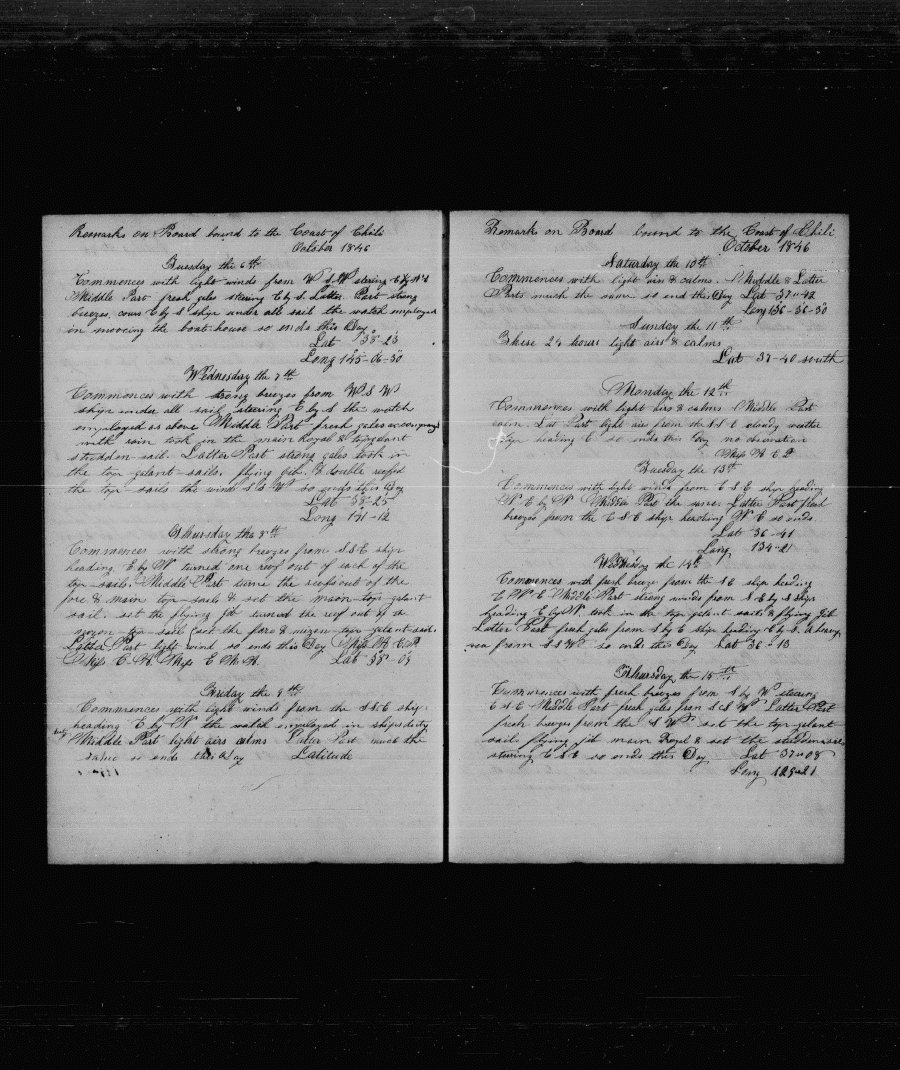 Remarks on Board bound to the Coast of Chili
October 1846
Tuesday the 6th
Commences with light winds from W S W stering E by N
Middle Part fresh gales stering E by S. Latter Part strong
breezes, cours E by S ship under all sail the watch employed
in mooving the boat house so ends this Day
Lat 38-23
Long 145-06-30
Wednesday the 7th
Commences with strong breezes from W S W
ship under all sail steering E by S the watch
employed as above Middle Part fresh gales
with rain took in the main Royal & topgalant
studden sail. Latter Part strong gales took in
the top galant sails, flying jib & double reefed
the top sails the wind S S W so ends this Day
Lat 38-25
Long 141-12
Thursday the 8th
Commences with strong breezes from S S E ship
heading E by N turned one reef out of each of the
top sails. Middle Part turned the reefs out of the
fore & main top sails & set the main top galant
sail. set the flying jib turned the reef out of
mizen top sail set the fore & mizen top galant sail.
Latter Part light wind so ends this Day
Lat 38-09
Friday the 9th
Commences with light winds from the S S E ship
heading E by N the watch employed in ships duty
Middle Part light airs calms Latter Part much the
same so ends this Day Latitude
Remarks on Board bound to the Coast of Chili
October 1846
Saturday the 10th
Commences with light airs & calms. Middle & Latter
Parts much the same so ends this Day Lat 37-42
Long 136-36-30
Sunday the 11th
These 24 hours light airs & calms
Lat 37-40 south
Monday the 12th
Commences with light airs & calms Middle Part
calm. Lat Part light air from the S S E cloudy weather
ship heading E so ends this Day no observation
Tuesday the 13th
Commences with light winds from E S E ship heading
N E by N Middle Part the same. Latter Part fresh
breezes from the E S E ship heading N E so ends.
Lat 36-41
Long 134-41
Wednesday the 14th
Commences with fresh breeze from the S E ship heading
E N E Middle Part strong winds from S E by S ship
heading E by N took in the top galant sails & flying jib
Latter Part fresh gales from S by E ship heading E by S. a heavy
sea from S S W so ends this Day Lat 36-13
Thursday the 15th
Commences with fresh breezes from S by W steering
E S E Middle Part fresh gales from S S W Latter Part
fresh breezes from the S W set the top galant
sails flying jib main Royal & set the studdensails
stering E S E so ends this Day Lat 37-08
Long 129-21